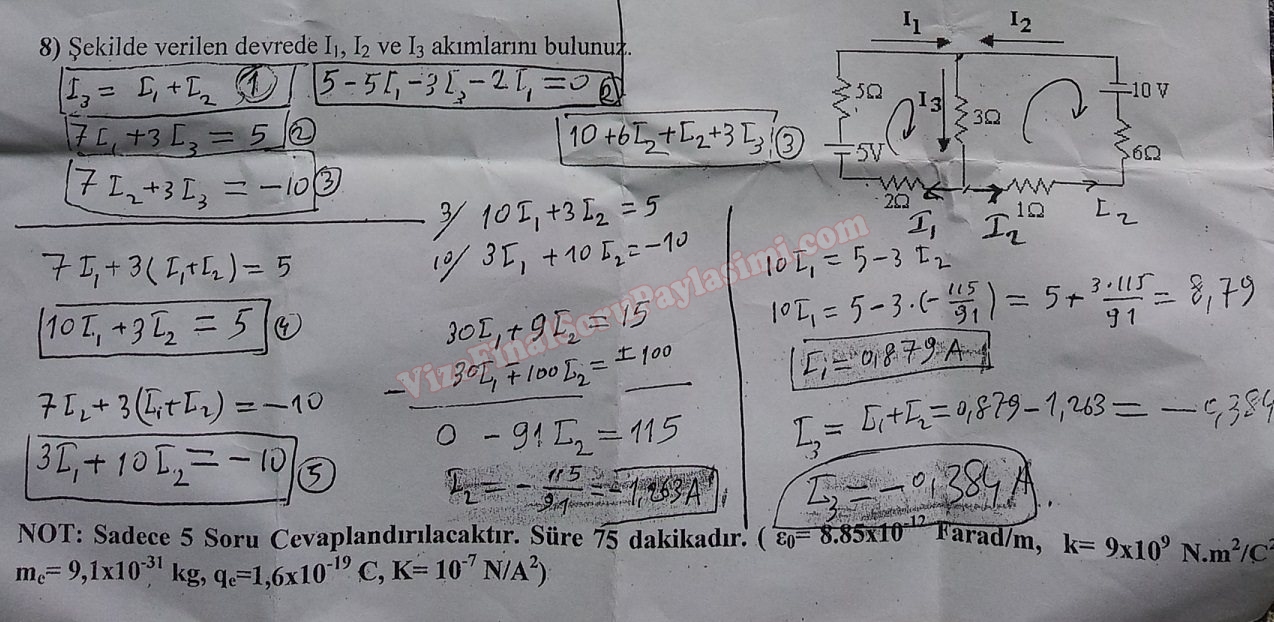 8) Şekilde verilen devrede I₁, I₂ ve I₃ akımlarını bulunuz.
I₃ = I₁ + I₂ ①
5 - 5I₁ - 3I₃ - 2I₁ = 0 ②
7I₁ + 3I₃ = 5 ②
10 + 6I₂ + I₂ + 3I₃ ③
7I₂ + 3I₃ = -10 ③
I₁
I₂
5Ω
I₃
3Ω
10 V
5V
6Ω
2Ω
1Ω
I₁
I₂
I₂
7I₁ + 3(I₁+I₂) = 5
10I₁ + 3I₂ = 5 ④
7I₂ + 3(I₁+I₂) = -10
3I₁ + 10I₂ = -10 ⑤
3/ 10I₁ + 3I₂ = 5
10/ 3I₁ + 10I₂ = -10
30I₁ + 9I₂ = 15
- 30I₁ ∓ 100I₂ = ± 100
0 - 91I₂ = 115
I₂ = - 115/91 = -1,263A
10I₁ = 5 - 3I₂
10I₁ = 5 - 3·(-115/91) = 5 + 3·115/91 = 8,79
I₁ = 0,879A
I₃ = I₁+I₂ = 0,879 - 1,263 = - 0,384
I₃ = -0,384A
VizeFinalSoruPaylasimi.com
NOT: Sadece 5 Soru Cevaplandırılacaktır. Süre 75 dakikadır. ( ε₀= 8.85x10⁻¹² Farad/m, k= 9x10⁹ N.m²/C²
mₑ= 9,1x10⁻³¹ kg, qₑ=1,6x10⁻¹⁹ C, K= 10⁻⁷ N/A²)